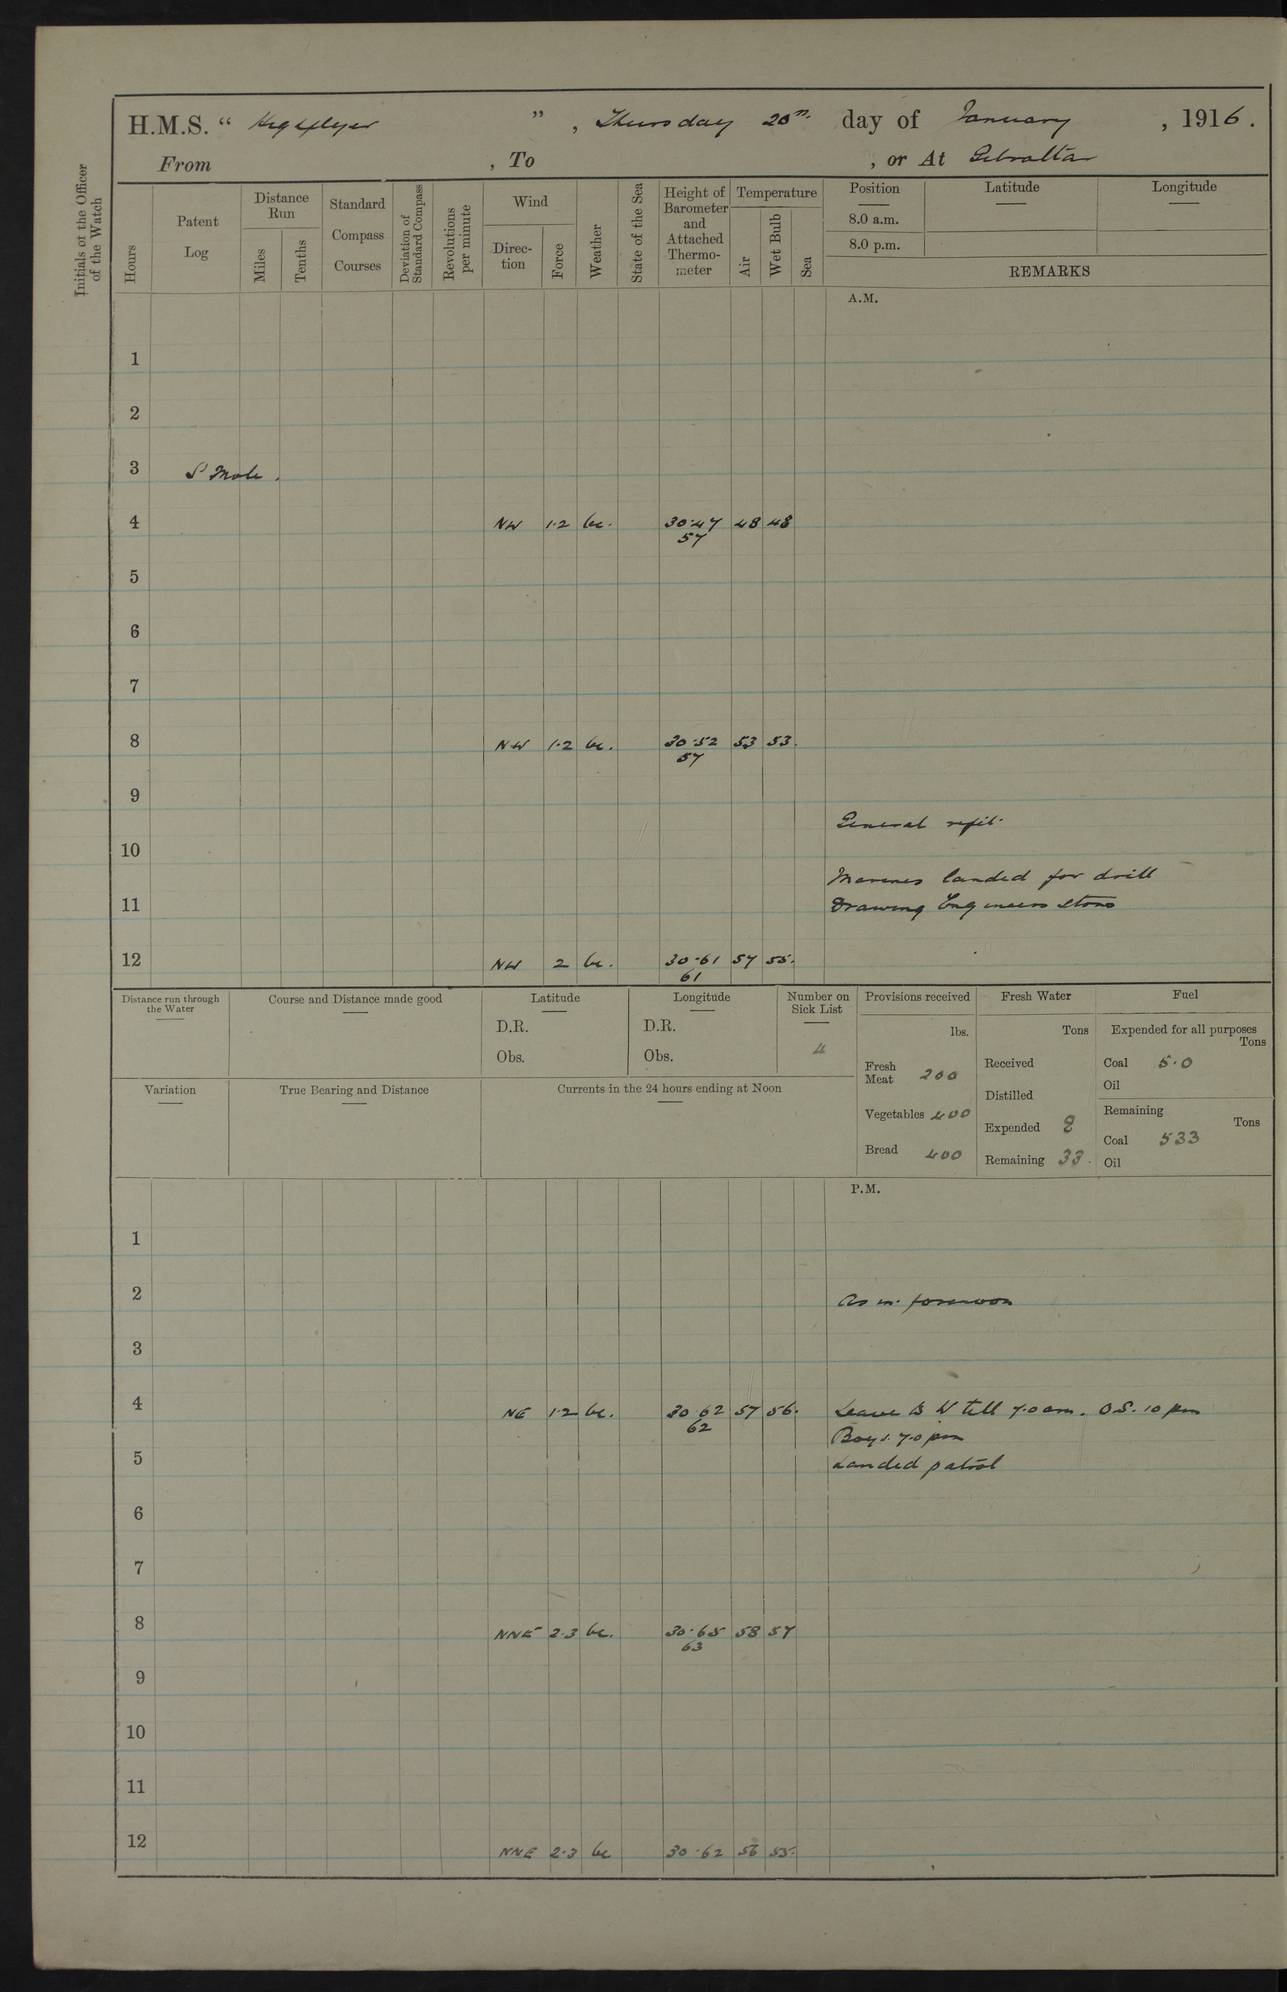 H.M.S. “ Highflyer ” , Thursday 20th day of January , 1916.
From , To , or At Gibraltar
Initials of the Officer of the Watch
Hours
Patent Log
Distance Run
Miles
Tenths
Standard Compass Courses
Deviation of Standard Compass
Revolutions per minute
Wind
Direc-tion
Force
Weather
State of the Sea
Height of Barometer and Attached Thermo-meter
Temperature
Air
Wet Bulb
Sea
Position
Latitude
Longitude
8.0 a.m.
8.0 p.m.
REMARKS
A.M.
1
2
3 S Mole.
4 NW 1.2 bc. 30.47 48 48
57
5
6
7
8 NW 1.2 bc. 30.52 53 53.
57
9
General refit.
10
Marines landed for drill
11 Drawing Engineers stores
12 NW 2 bc. 30.61 57 55.
61
Distance run through the Water
Course and Distance made good
Latitude
D.R.
Obs.
Longitude
D.R.
Obs.
Number on Sick List
4
Provisions received
lbs.
Fresh Meat 200
Vegetables 400
Bread 400
Fresh Water
Tons
Received
Distilled
Expended 8
Remaining 33.
Fuel
Expended for all purposes
Tons
Coal 5.0
Oil
Remaining
Tons
Coal 533
Oil
Variation
True Bearing and Distance
Currents in the 24 hours ending at Noon
P.M.
1
2 As in forenoon
3
4 NE 1.2 bc. 30.62 57 56. Leave B W till 7.0 am. O.S. 10 pm
62 Boys. 7.0 pm
5 Landed patrol
6
7
8 NNE 2.3 bc. 30.65 58 57
63
9
10
11
12 NNE 2.3 bc 30.62 56 55.